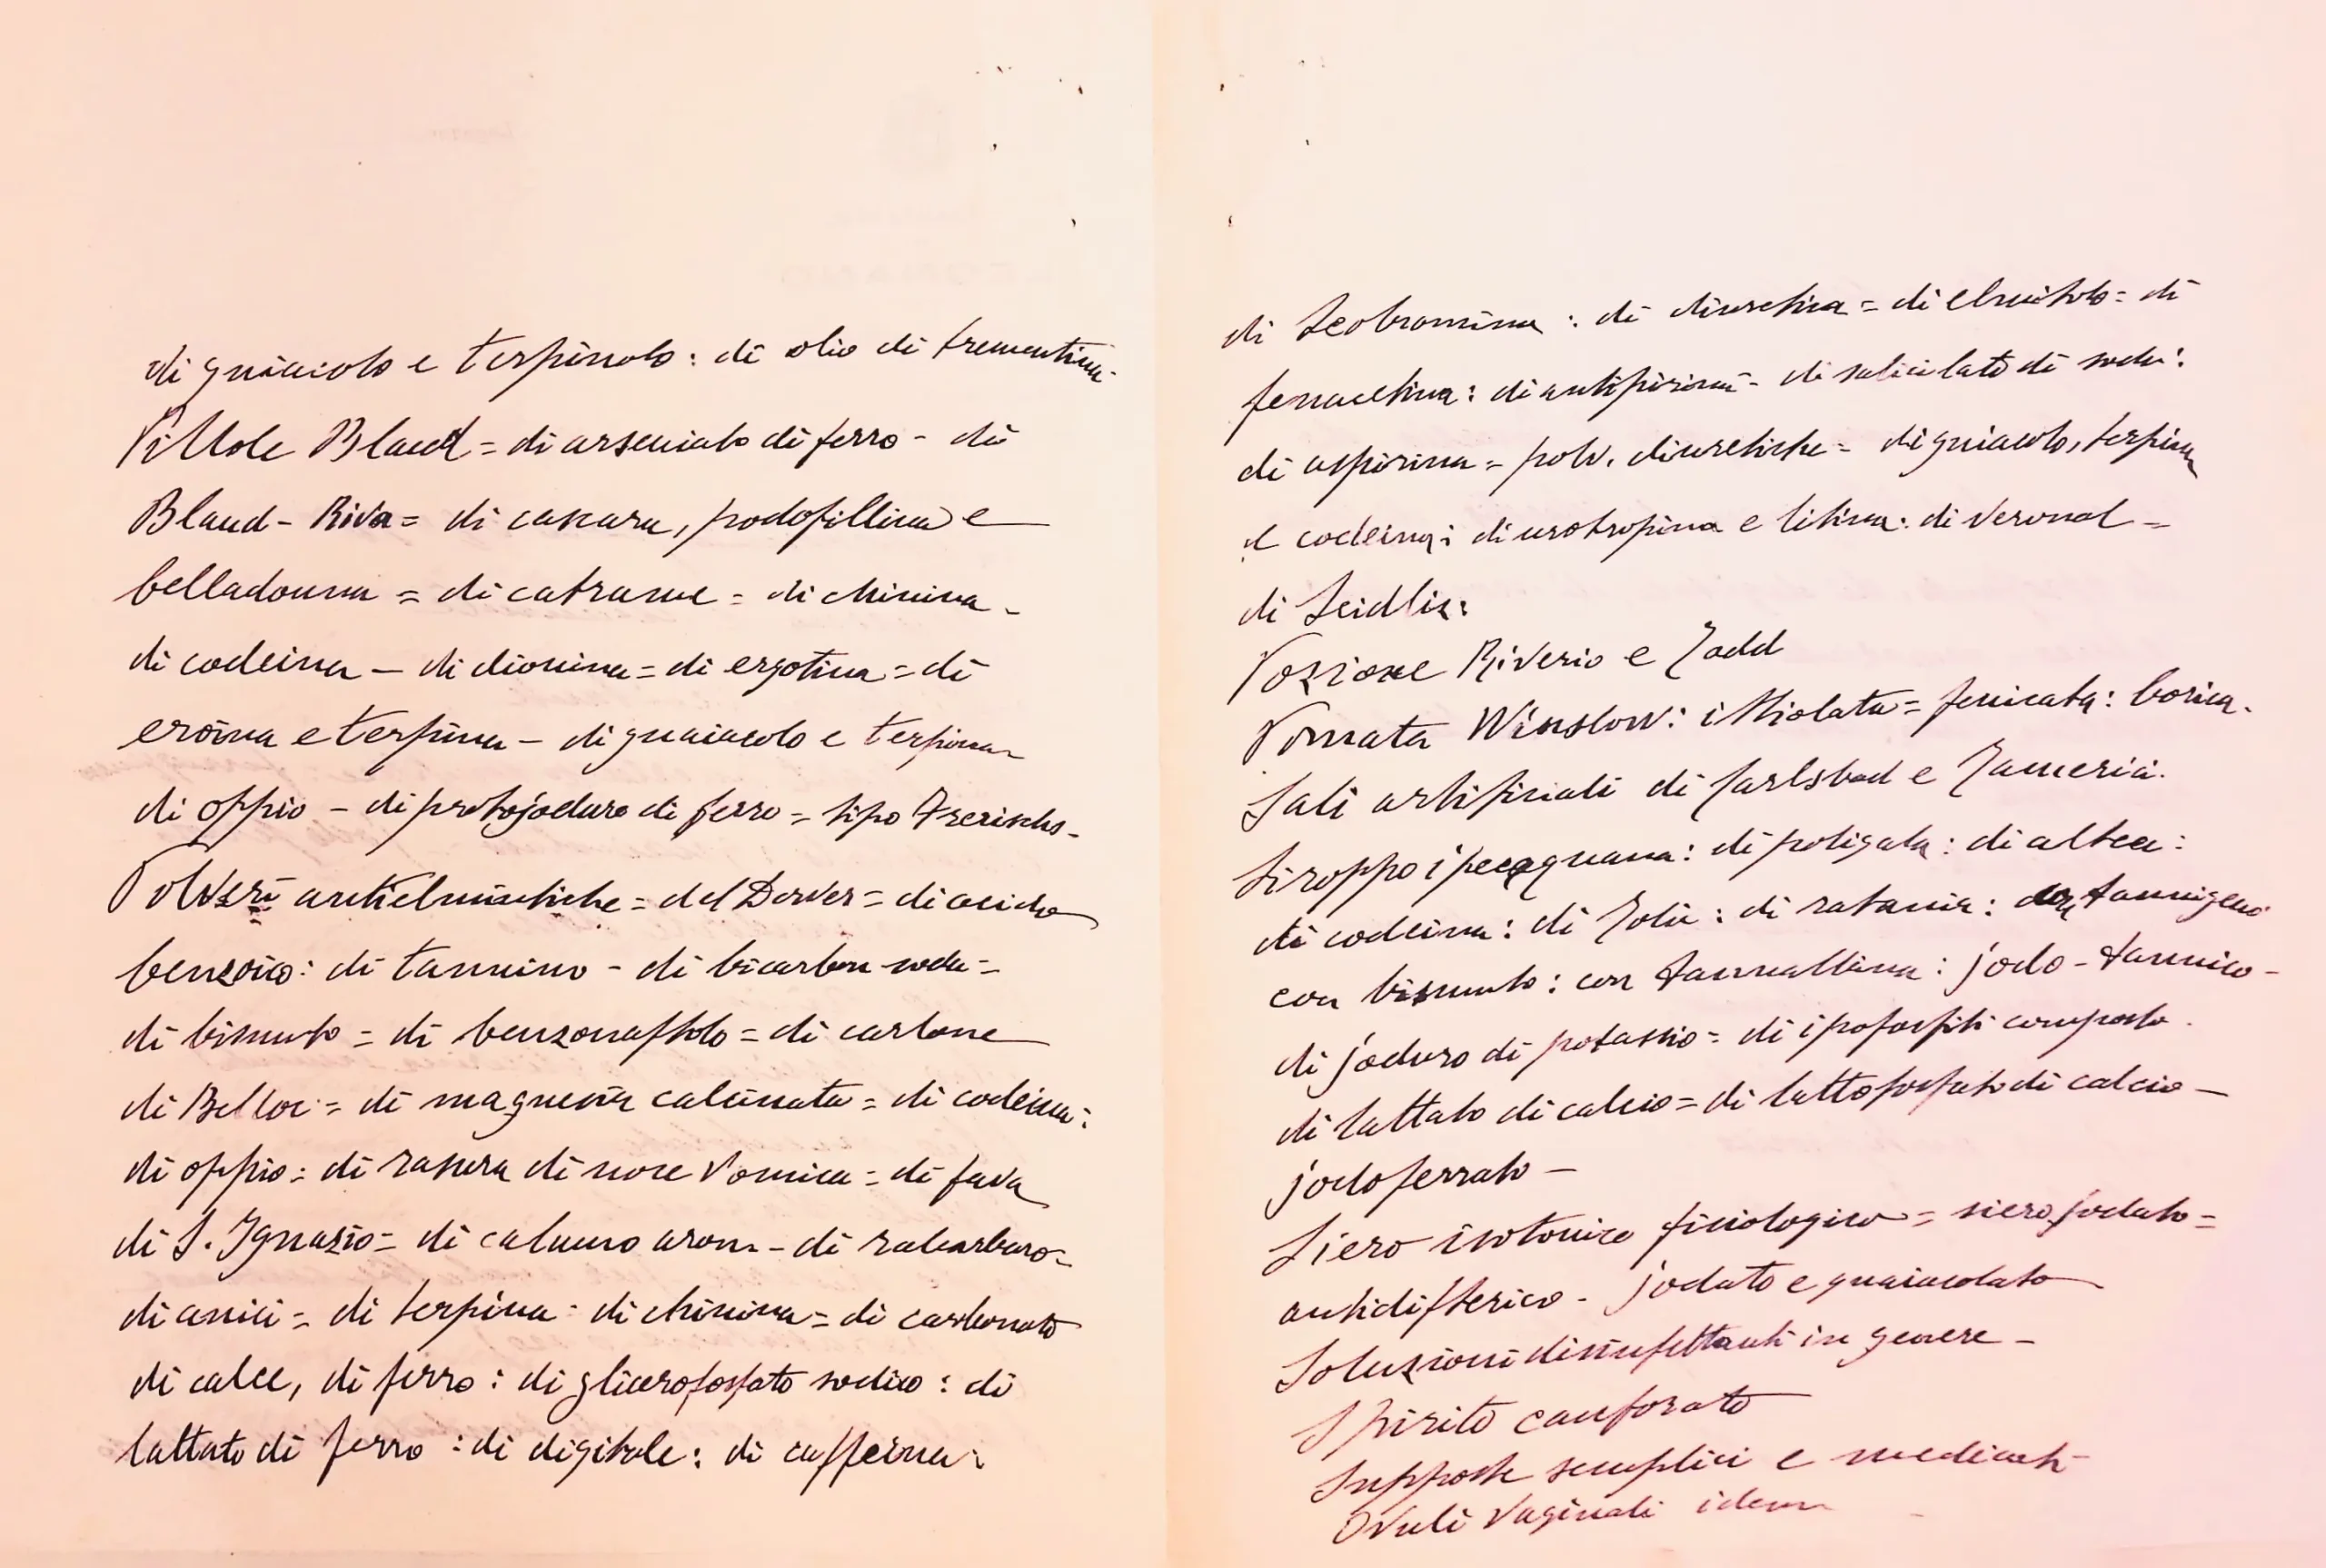 di guaiacolo e terpinolo: di olio di trementina.
Pillole Blaud = di arseniato di ferro - di
Blaud - Riva = di cascara, podofillina e
belladonna = di catrame = di chinina -
di codeina - di dionina = di ergotina = di
eroina e terpina - di guaiacolo e terpina -
di oppio - di protojoduro di ferro = tipo Frerichs -
Polveri antielmintiche = del Dower = di acido
benzoico: di tannino - di bicarbon soda =
di bismuto = di benzonaftolo = di carbone
di Belloc = di magnesia calcinata = di codeina:
di oppio: di rasura di noce vomica = di fava
di S. Ignazio = di calamo arom - di rabarbaro -
di anici = di terpina - di chinina = di carbonato
di calce, di ferro: di glicerofosfato sodico: di
lattato di ferro: di digitale: di caffeina:
di teobromina: di diuretina = di elmitolo = di
fenacetina: di antipirina - di salicilato di soda:
di aspirina = polv. diuretiche = di guiacolo, terpina
e codeina: di urotropina e litina: di veronal =
di Seidliz:
Pozione Riverio e Todd
Pomata Winslow: ittiolata = fenicata: borica.
Sali artificiali di Carlsbad e Tamerici.
Siroppo ipecaquana: di poligala: di altea:
di codeina: di Tolù: di ratania: con tannigeno
con bismuto: con tannalbina: jodo - tannico -
di joduro di potassio = di ipofosfiti composto.
di lattato di calcio = di lattofosfato di calcio -
jodoferrato -
Siero isotonico fisiologico = siero jodato =
antidifterico - jodato e guaiacolato
Soluzioni disinfettanti in genere -
Spirito canforato
Supposte semplici e medicate
Ovuli vaginali idem